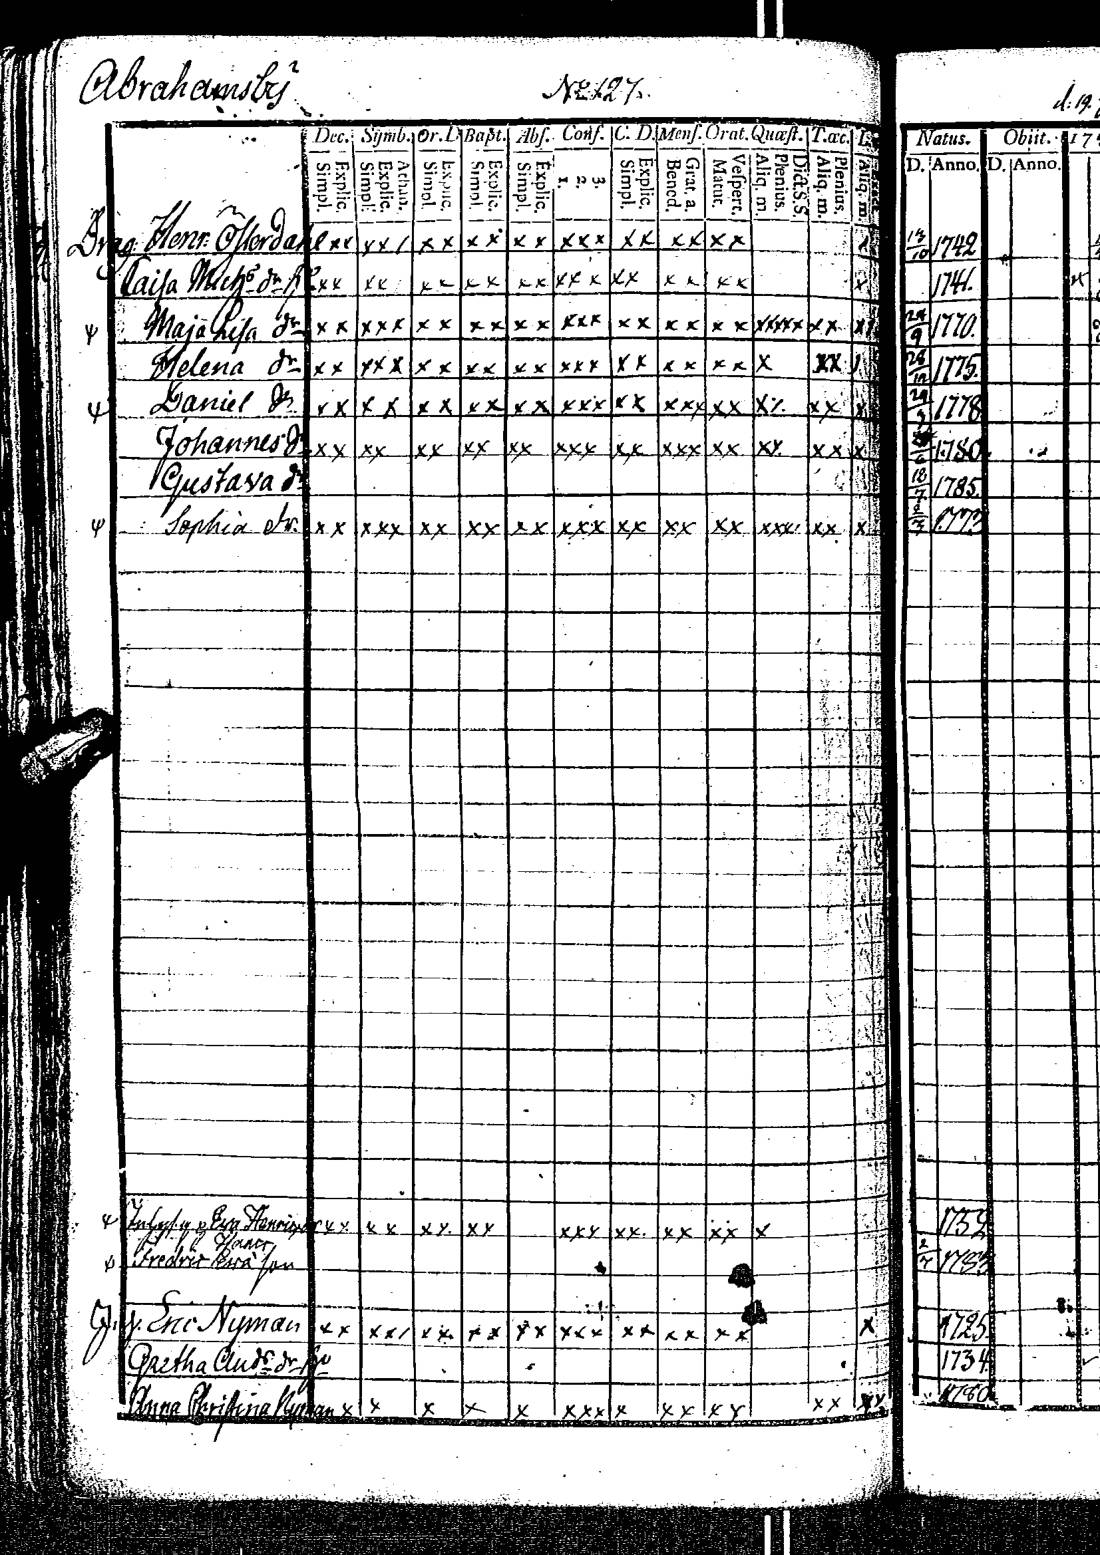 Abrahamsby
No 127.
d: 19.
Dec. Symb. Or. D Bapt. Abs. Conf. C. D. Mens. Orat. Quæst. Tæc. L.
Natus. Obiit. 17
Explic. Simpl. Athan. Explic. Simpl. Explic. Simpl. Explic. Simpl. Explic. Simpl. 3. 2. 1. Explic. Simpl. Grat. a. Bened. Vespert. Matut. Dict. S. S. Plenius. Aliq. m. Plenius. Aliq. m. Aliq. m.
D. Anno. D. Anno.
Henr: Österdahl xx xx/ xx xx xx xxx xx xx xx x 13/10 1742
Caisa Michs dr xx xx xx xx xx xxx xx xx xx x 1741.
ψ Maja Lisa dr xx xxx xx xx xx xxx xx xx xx xxxxx xx 24/9 1770.
Helena dr xx xxx xx xx xx xxx xx xx xx x xx 1775.
ψ Daniel dr xx xx xx xx xx xxx xx xxx xx xx x 1778
Johannes dr xx xx xx xx xx xxx xx xxx xx xx xx x 1780
Gustava dr 18/7 1785.
ψ Sophia dr. xx xxx xx xx xx xxx xx xx xx xxx xx x 1773
ψ Eva Henrics xx xx xx. xx xxx xx. xx xx x 1752
ψ Fredric Eva son 2/7 1783
Eric Nyman xx xx/ xx. xx xx xxx xx xx xx x 1725
Gretha Ands dr 1734
Anna Christina Nyman x x x x x xxx x xx xx xx xx 1780